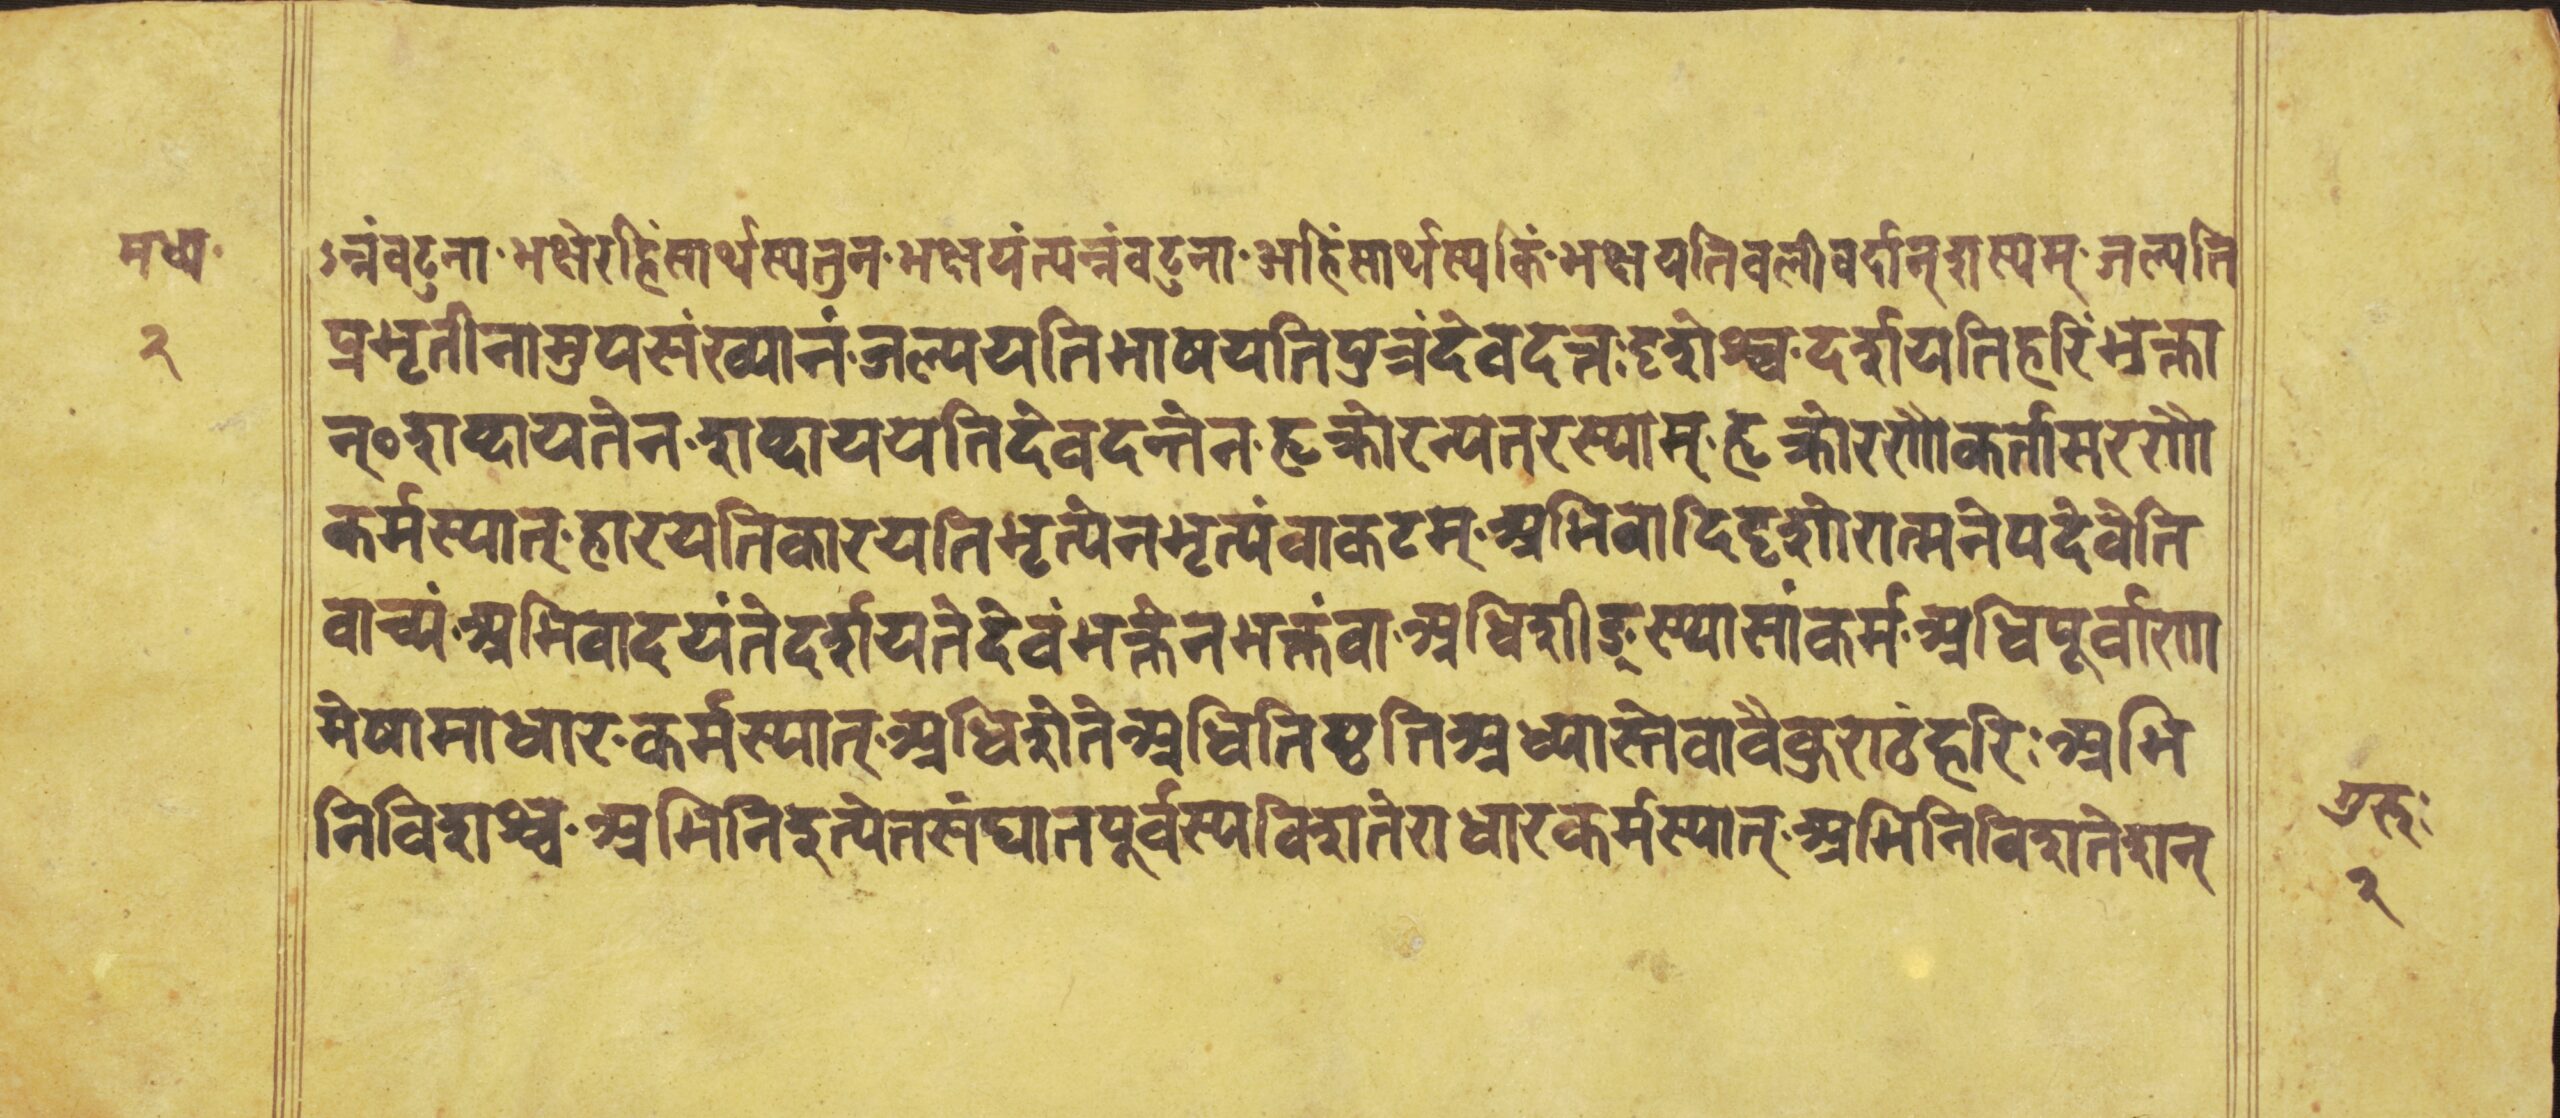 मध्य॰
२
ऽन्नंवटुना॰भक्षेरहिंसार्थस्यतुन॰भक्षयंत्यन्नंवटुना॰अहिंसार्थस्यकिं॰भक्षयतिवलीवर्दान्शस्यम्॰जल्पति
प्रभृतीनामुपसंख्यानं॰जल्पयतिभाषयतिपुत्रंदेवदत्तः॰दृशेश्च॰दर्शयतिहरिंभक्ता
न्०शब्दायतेन॰शब्दाययतिदेवदत्तेन॰हृक्रोरन्यतरस्याम्॰हृक्रोरणौकर्तामरणौ
कर्मस्यात्॰हारयतिकारयतिभृत्येनभृत्यंवाकटम्॰अभिवादिदृशोरात्मनेपदेवेति
वाच्यं॰अभिवादयंतेदर्शयतेदेवंभक्तेनभक्तंवा॰अधिशीङ्स्थासांकर्म॰अधिपूर्वाणा
मेषामाधार॰कर्मस्यात्॰अधिशेतेअधितिष्ठतिअध्यास्तेवावैकुण्ठंहरिः॰अभि
निविशश्च॰अभिनिइत्येतसंघातपूर्वस्यविशतेराधारकर्मस्यात्॰अभिनिविशतेशन्
२